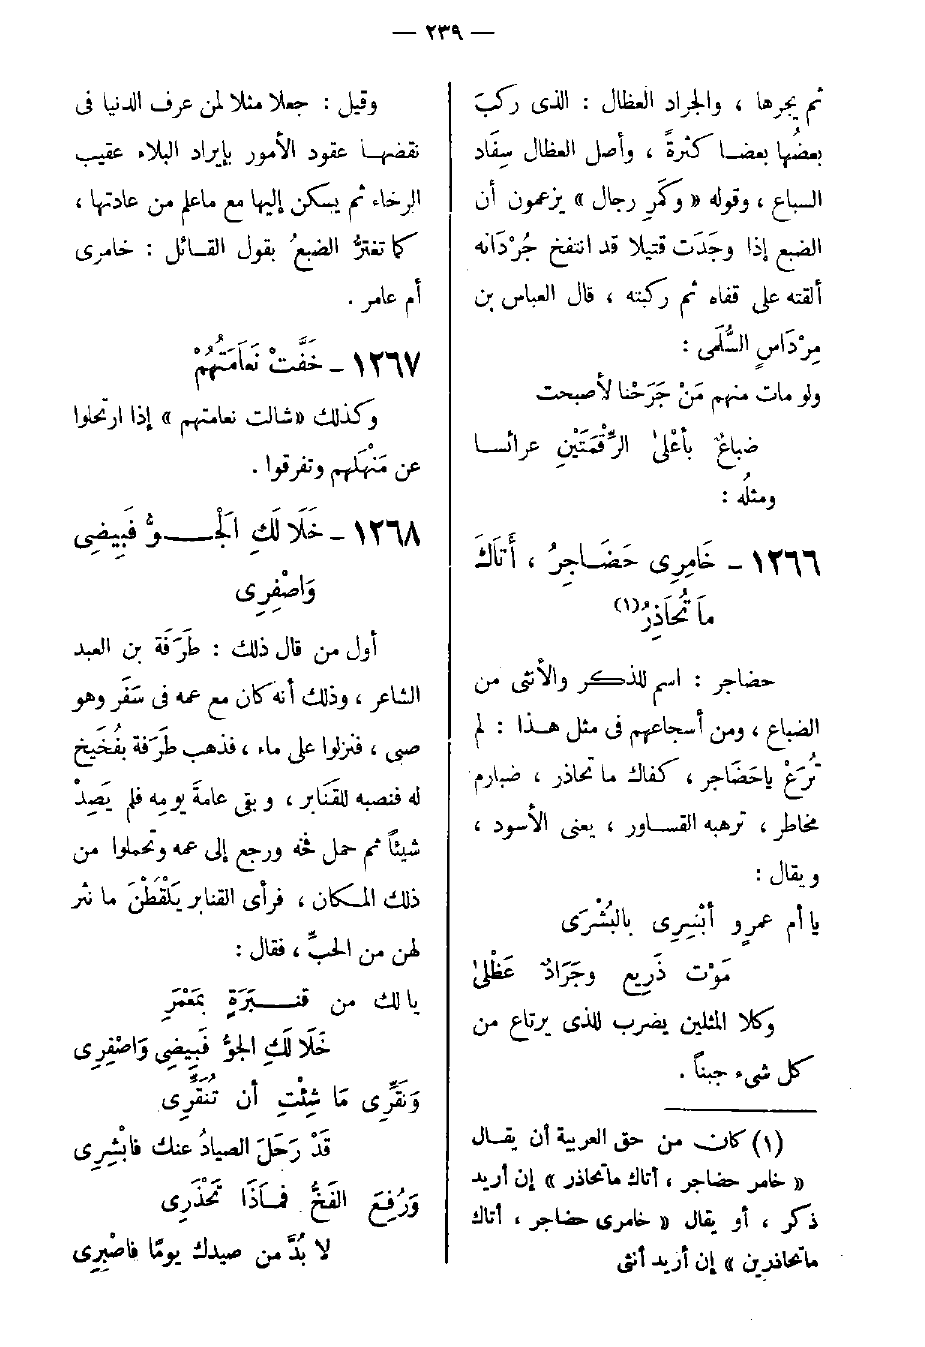 — ٢٣٩ —
ثم يجرها ، والجراد العظال : الذى ركبَ
بعضُها بعضا كثرةً ، وأصل العظال سِفَاد
السباع ، وقوله « وكَمَرِ رجال » يزعمون أن
الضبع إذا وجَدَت قتيلا قد انتفخ جُرْدَانه
ألقته على قفاه ثم ركبته ، قال العباس بن
مِرْدَاسٍ السُّلَمى :
ولو مات منهم مَنْ جَرَحْنا لأصبحت
ضباعٌ بأعْلىٰ الرَّقْمَتَيْنِ عرائسا
ومثلُه :
١٢٦٦ - خَامِرِى حَضَاجِرُ ، أَتَاكَ
مَا تُحَاذِرُ(١)
حضاجر : اسم للذكر والأنثى من
الضباع ، ومن أسجاعهم فى مثل هذا : لم
تُرَعْ ياحَضَاجر ، كفاك ما تحاذر ، ضبارم
مخاطر ، ترهبه القساور ، يعنى الأسود ،
ويقال :
يا أم عمرٍو أبْشِرِى بالبُشْرَى
مَوْت ذَرِيع وجَرَادٌ عَظْلىٰ
وكلا المثلين يضرب للذى يرتاع من
كل شىء جبناً .
(١) كان من حق العربية أن يقال
« خامر حضاجر ، أتاك ماتحاذر » إن أريد
ذكر ، أو يقال « خامرى حضاجر ، أتاك
ماتحاذرين » إن أريد أنثى
وقيل : جعلا مثلا لمن عرف الدنيا فى
نقضها عقود الأمور بإيراد البلاء عقيب
الرخاء ثم يسكن إليها مع ماعلم من عادتها ،
كما تغترُّ الضبعُ بقول القائل : خامرى
أم عامر .
١٢٦٧ - خَفَّتْ نَعَامَتُهُمْ
وكذلك «شالت نعامتهم » إذا ارتحلوا
عن مَنْهَلهم وتفرقوا .
١٢٦٨ - خَلَا لَكِ الْجَوُّ فَبِيضِى
وَاصْفِرِى
أول من قال ذلك : طَرَفَة بن العبد
الشاعر ، وذلك أنه كان مع عمه فى سَفَر وهو
صبى ، فنزلوا على ماء ، فذهب طَرَفة بفُخَيخ
له فنصبه للقَنَابر ، وبقى عامةَ يومِه فلم يَصِدْ
شيئاً ثم حمل فخه ورجع إلى عمه وتحملوا من
ذلك المكان ، فرأى القنابر يَلْقُطْنَ ما نثر
لهن من الحبِّ ، فقال :
يالك من قنبَرَةٍ بمَعْمَرِ
خَلَا لَكِ الجوُّ فَبِيضِى وَاصْفِرِى
وَنَقِّرِى مَا شِئْتِ أن تُنَقِّرِى
قَدْ رَحَلَ الصيادُ عنك فابْشِرِى
وَرُفِعَ الفَخُّ فَمَاذَا تَحْذَرِى
لا بُدَّ من صيدك يومًا فاصْبِرِى